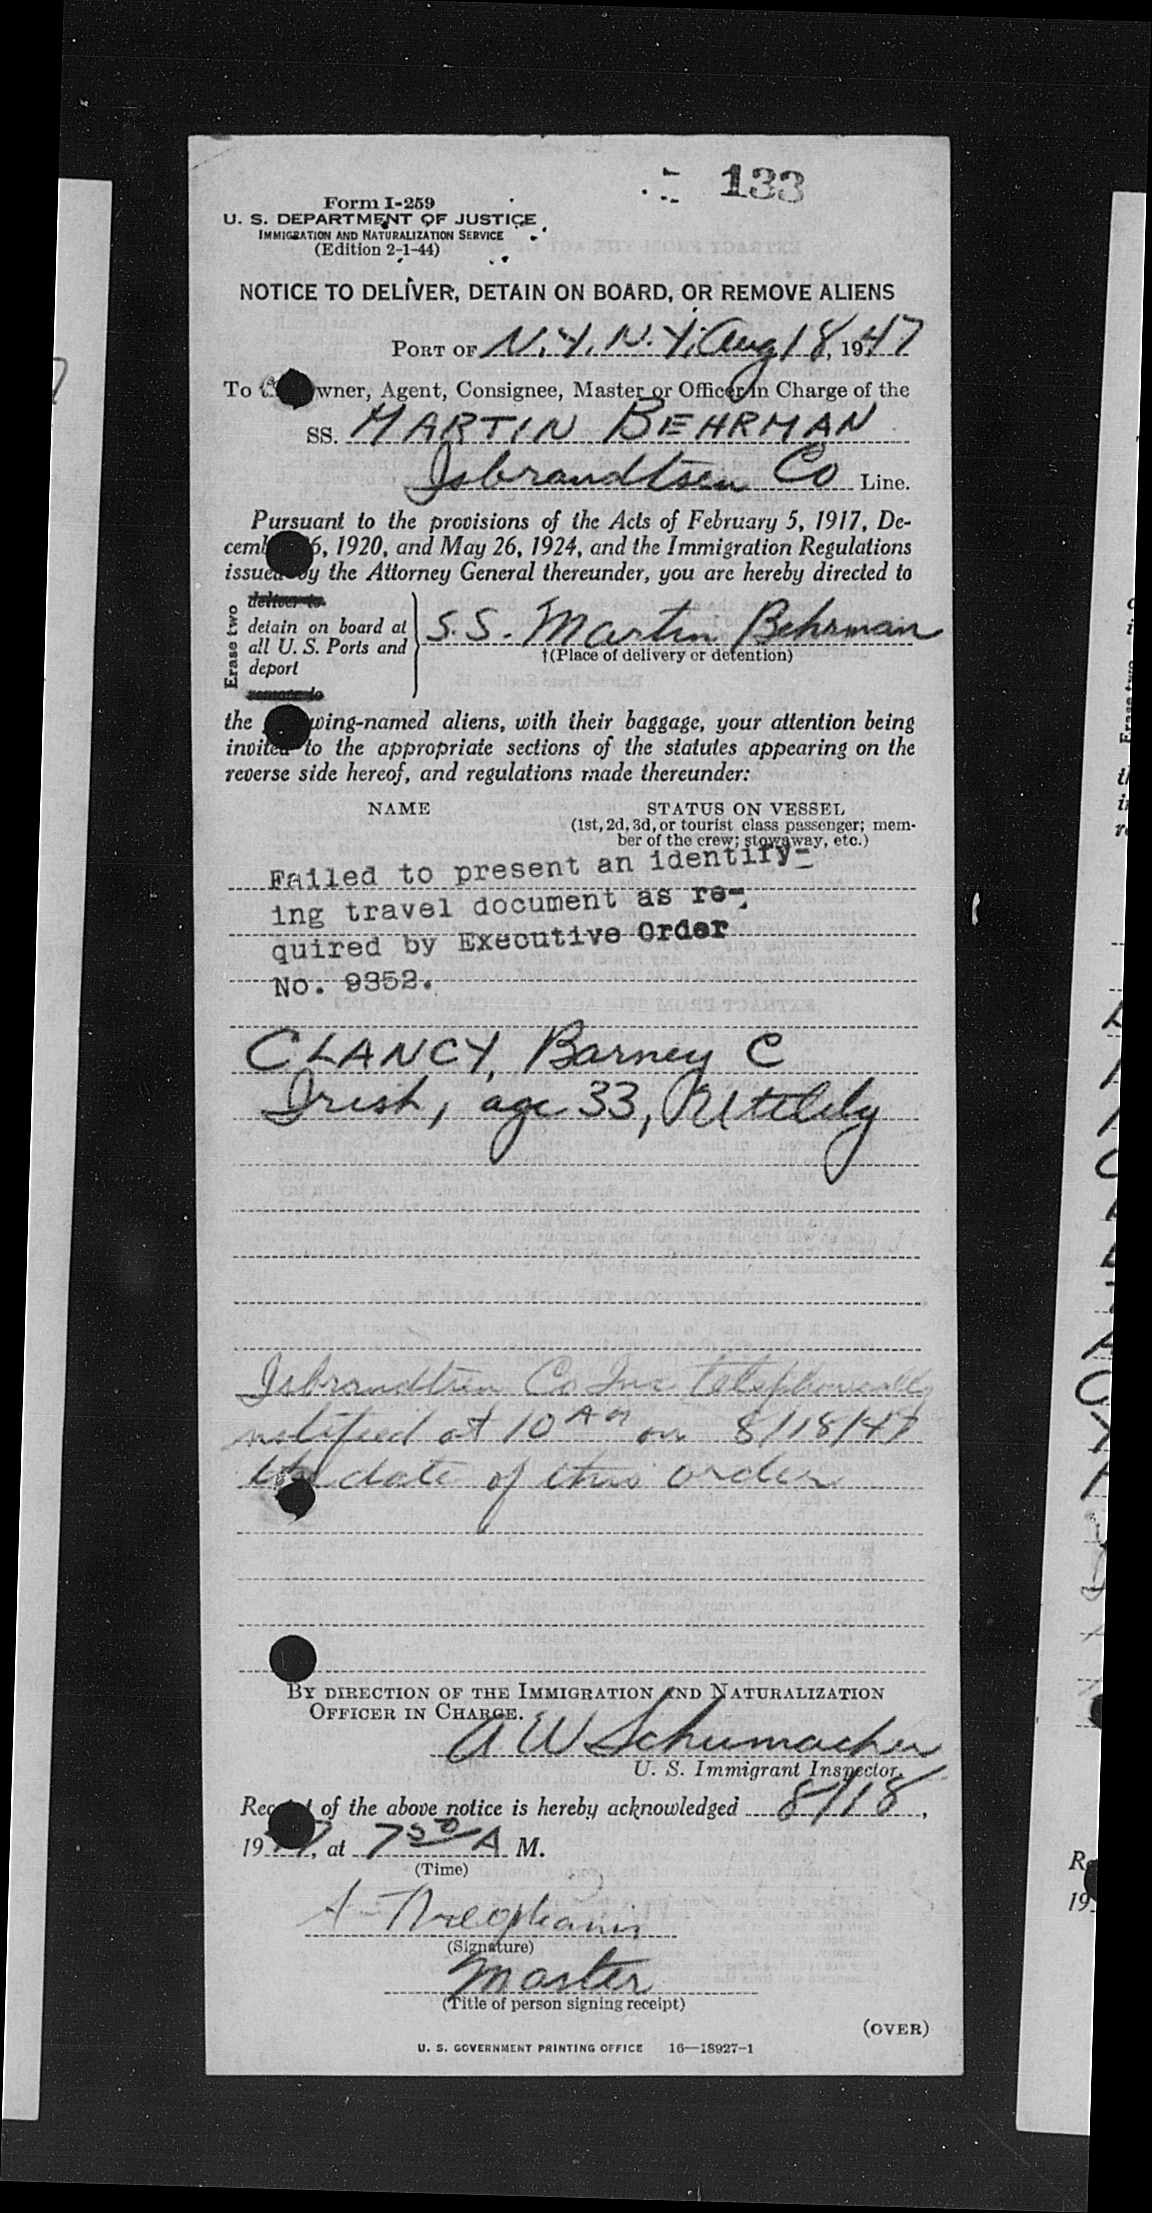 133
Form I-259
U. S. DEPARTMENT OF JUSTICE
IMMIGRATION AND NATURALIZATION SERVICE
(Edition 2-1-44)
NOTICE TO DELIVER, DETAIN ON BOARD, OR REMOVE ALIENS
PORT OF N.Y. N.Y. Aug 18, 1947
To wner, Agent, Consignee, Master or Officer in Charge of the
SS. MARTIN BEHRMAN
Isbrandtsen Co Line.
Pursuant to the provisions of the Acts of February 5, 1917, De-
cem 6, 1920, and May 26, 1924, and the Immigration Regulations
issued by the Attorney General thereunder, you are hereby directed to
Erase two
deliver to
detain on board at
all U. S. Ports and
deport
remove to
S.S. Martin Behrman
†(Place of delivery or detention)
the wing-named aliens, with their baggage, your attention being
invited to the appropriate sections of the statutes appearing on the
reverse side hereof, and regulations made thereunder:
NAME STATUS ON VESSEL
(1st, 2d, 3d, or tourist class passenger; mem-
ber of the crew; stowaway, etc.)
Failed to present an identify-
ing travel document as re-
quired by Executive Order
No. 9352.
CLANCY, Barney C
Irish, age 33, Utility
Isbrandtsen Co Inc telephonically
notified at 10 AM on 8/18/47
the date of this order
BY DIRECTION OF THE IMMIGRATION AND NATURALIZATION
OFFICER IN CHARGE.
A W Schumacher
U. S. Immigrant Inspector.
Rec of the above notice is hereby acknowledged 8/18,
1947, at 7 50 A M.
(Time)
(Signature)
Master
(Title of person signing receipt)
(OVER)
U. S. GOVERNMENT PRINTING OFFICE 16—18927-1